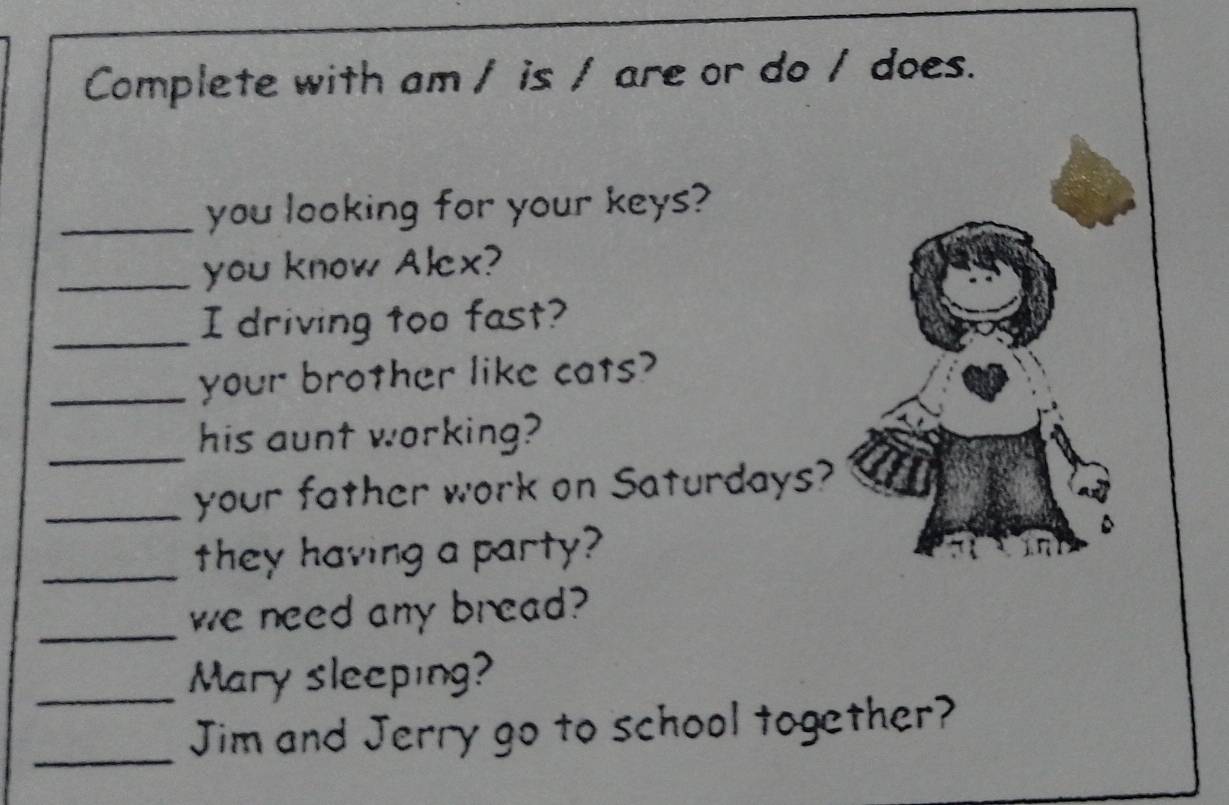 Complete with am / is / are or do / does.
______ you looking for your keys?
______ you know Alex?
______ I driving too fast?
______ your brother like cats?
______ his aunt working?
______ your father work on Saturdays?
______ they having a party?
______ we need any bread?
______ Mary sleeping?
______ Jim and Jerry go to school together?